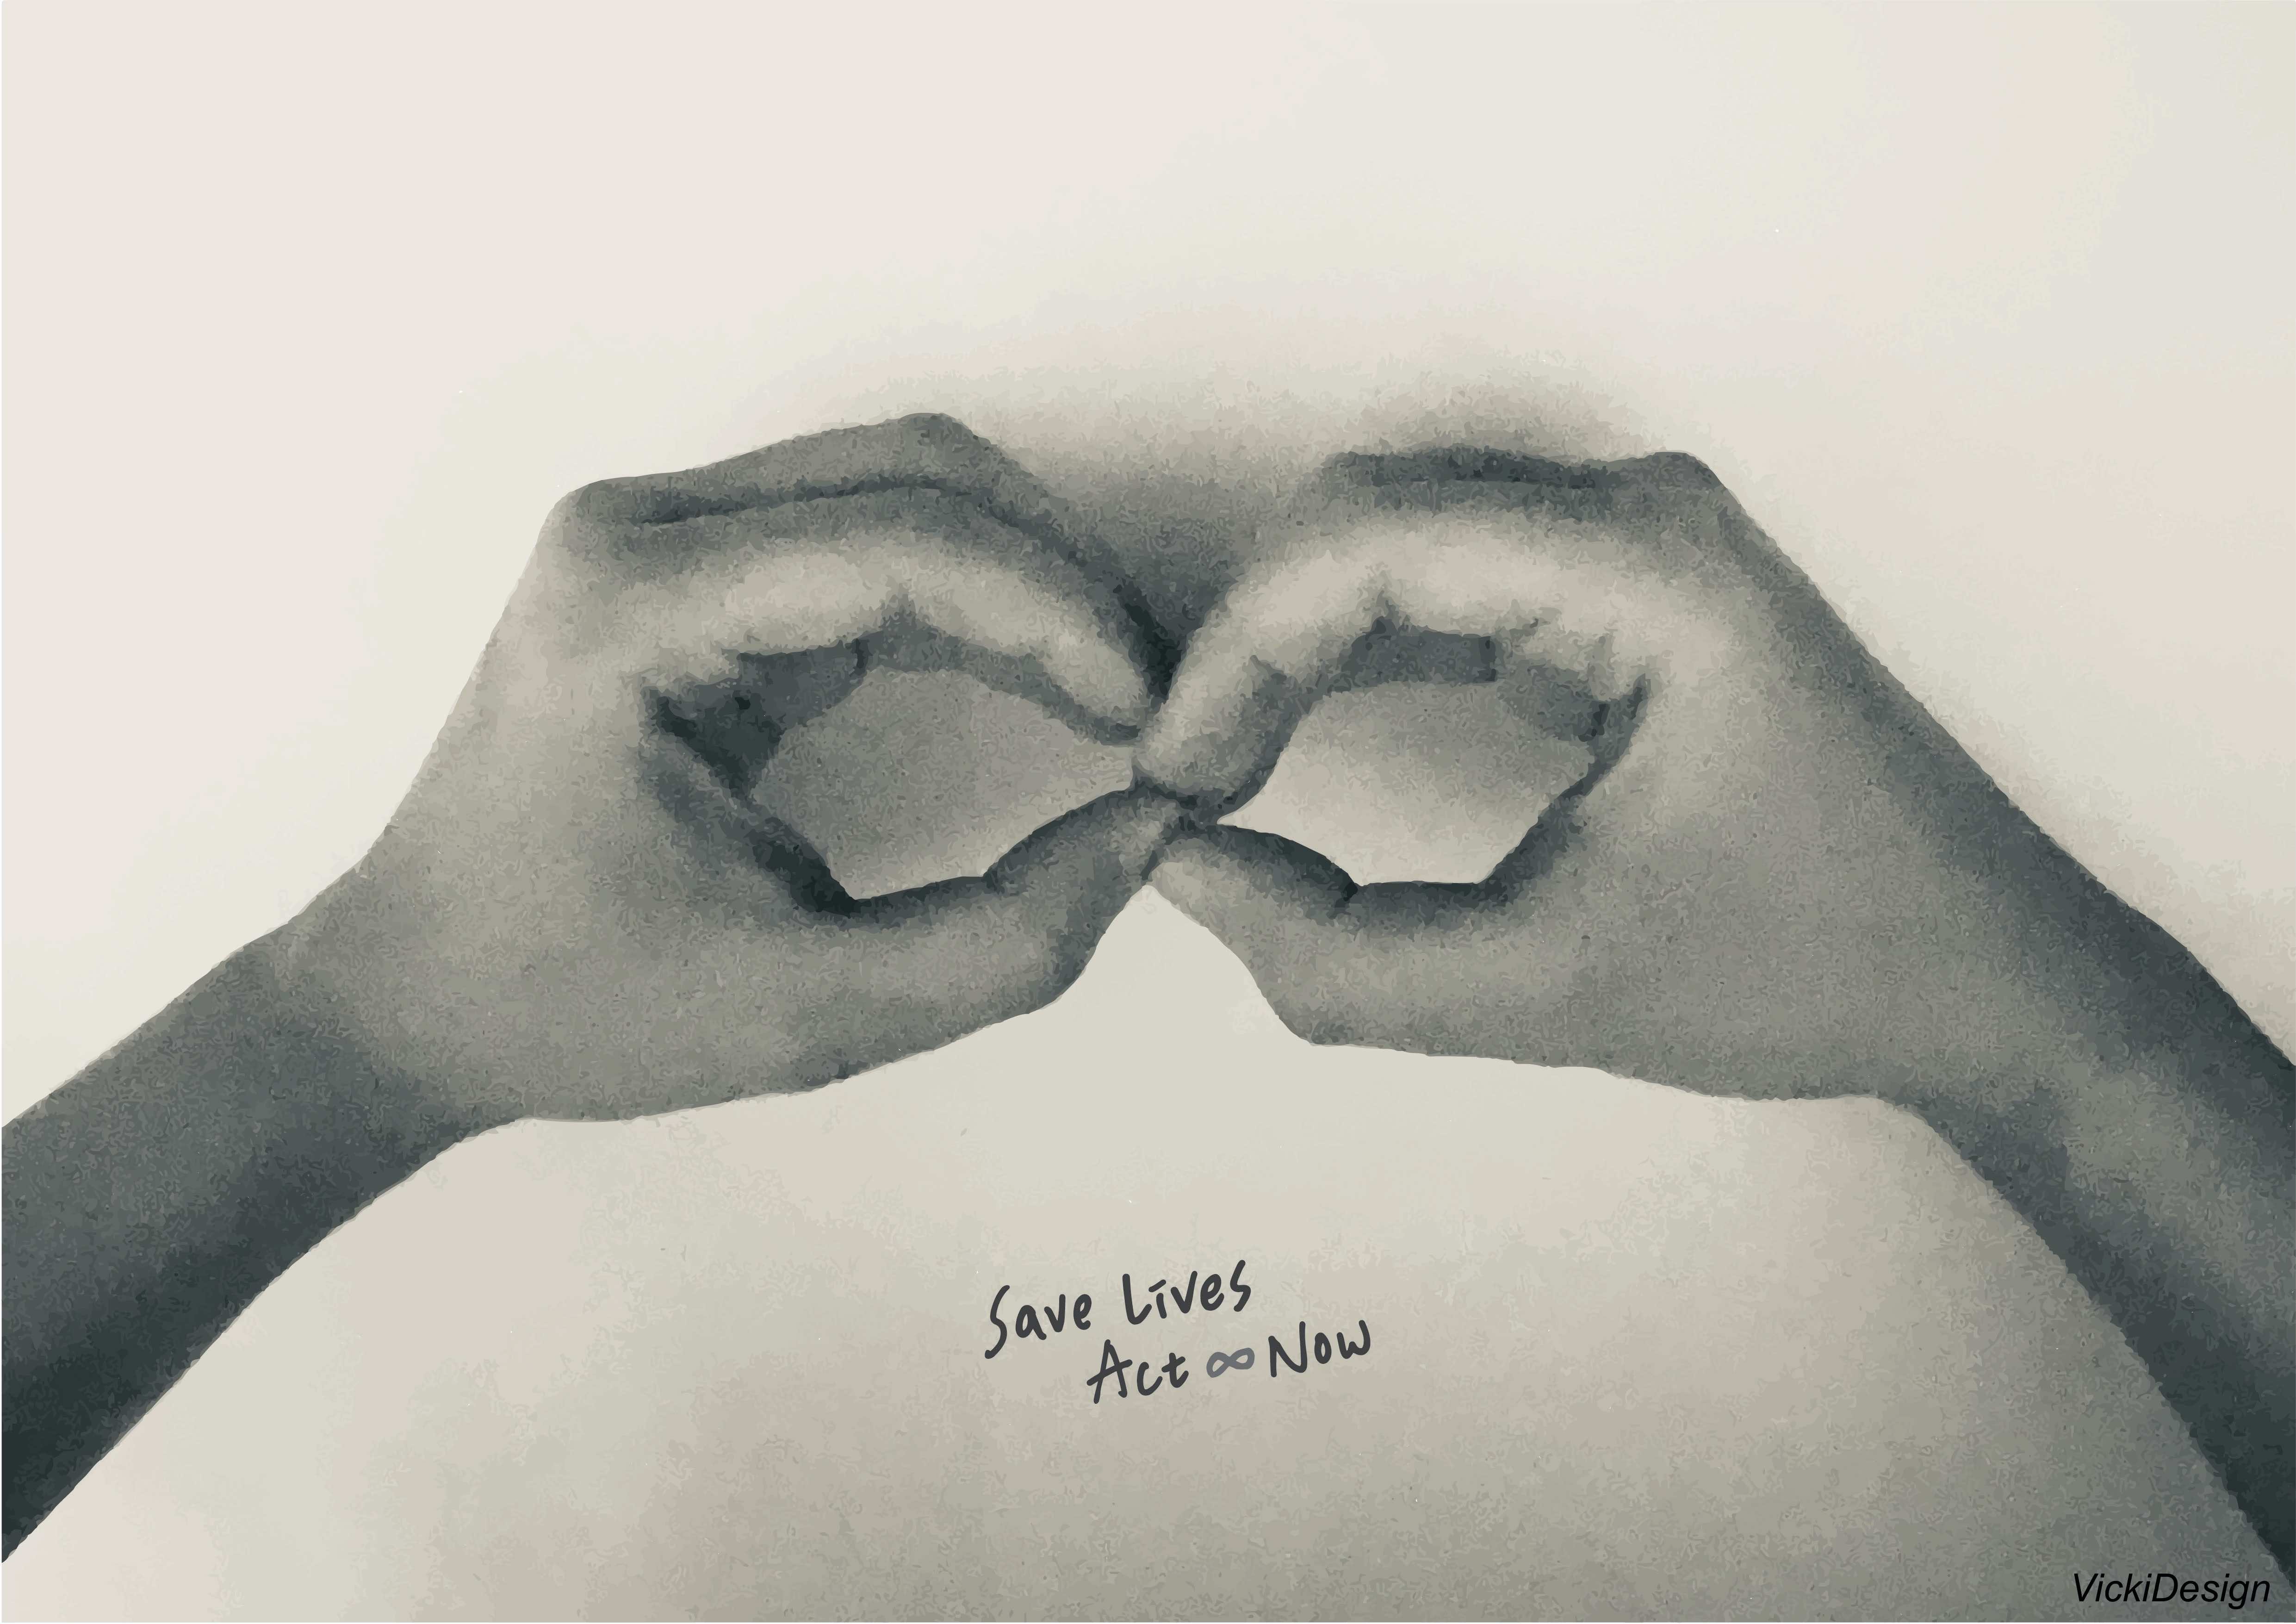 Save Lives
Act ∞ Now
VickiDesign